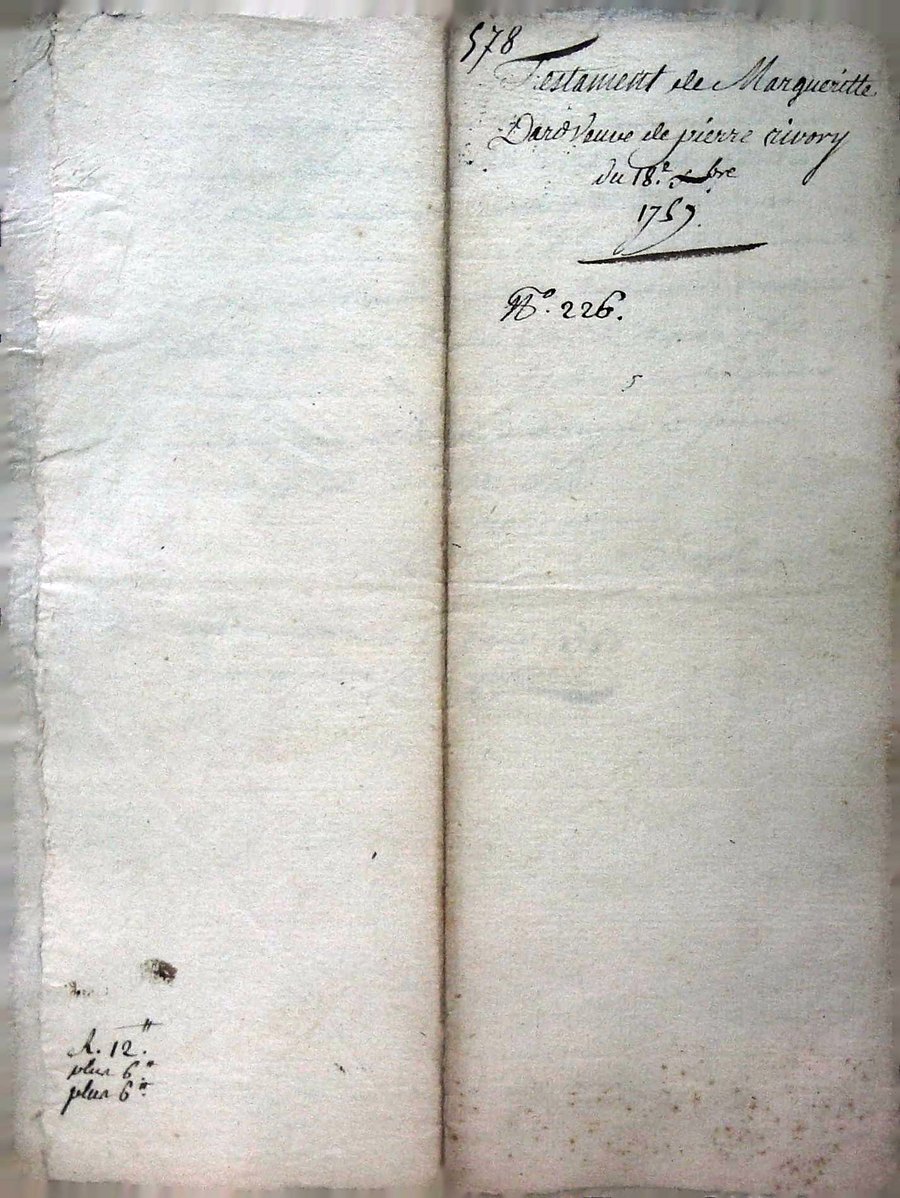 578
Testament de Margueritte
Dard Veuve de pierre rivory
du 18.e xbre
1757.
N.o 226.
R. 12.tt
plus 6.tt
plus 6.tt